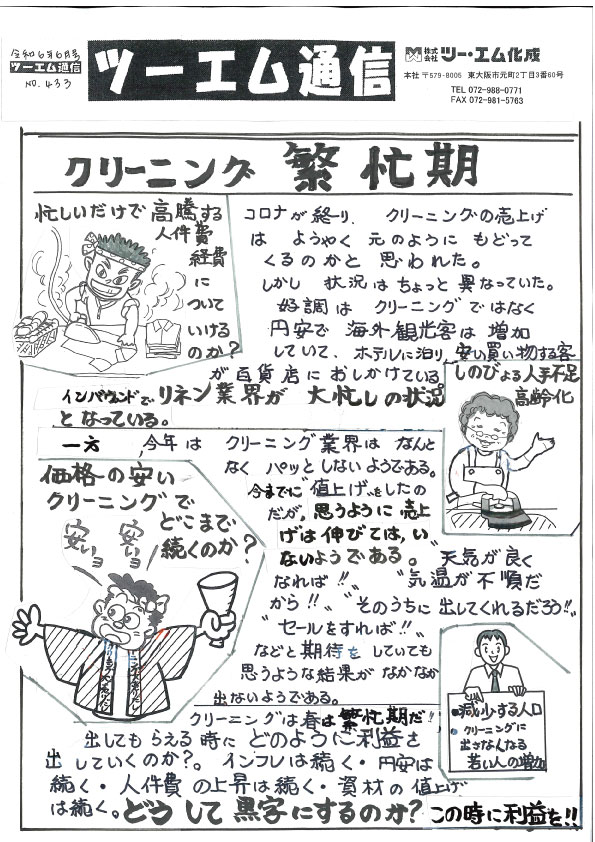 令和6年6月号
ツーエム通信
NO.433
ツーエム通信
株式会社 ツー・エム化成
本社 〒579-8005 東大阪市元町2丁目3番60号
TEL 072-988-0771
FAX 072-981-5763
クリーニング 繁忙期
忙しいだけで高騰する
人件費
経費
に
ついて
いける
のか?
コロナが終り、クリーニングの売上げ
は ようやく 元のように もどって
くるのかと 思われた。
しかし 状況は ちょっと 異なっていた。
好調は クリーニングではなく
円安で 海外観光客は 増加
していて、ホテルに泊り、安い買い物する客
が百貨店におしかけている
インバウンドでリネン業界が 大忙しの状況
となっている。
しのびよる人手不足
高齢化
一方 、今年は クリーニング業界は なんと
なく パッとしないようである。
今までに"値上げ"をしたの
だが、思うように売上
げは伸びては、い
ないようである。"天気が良く
なれば!!" "気温が不順だ
から!!" "そのうちに出してくれるだろう!!"
"セールをすれば!!"
などと期待をしていても
思うような結果がなかなか
出ないようである。
価格の安い
クリーニングで
どこまで
続くのか?
安いョ
安いョ
減少する人口
クリーニングに
出さなくなる
若い人の増加
クリーニングは春は繁忙期だ!!
出してもらえる時にどのように利益を
出していくのか?。インフレは続く・円安は
続く・人件費の上昇は続く・資材の値上げ
は続く。どうして黒字にするのか?この時に利益を!!